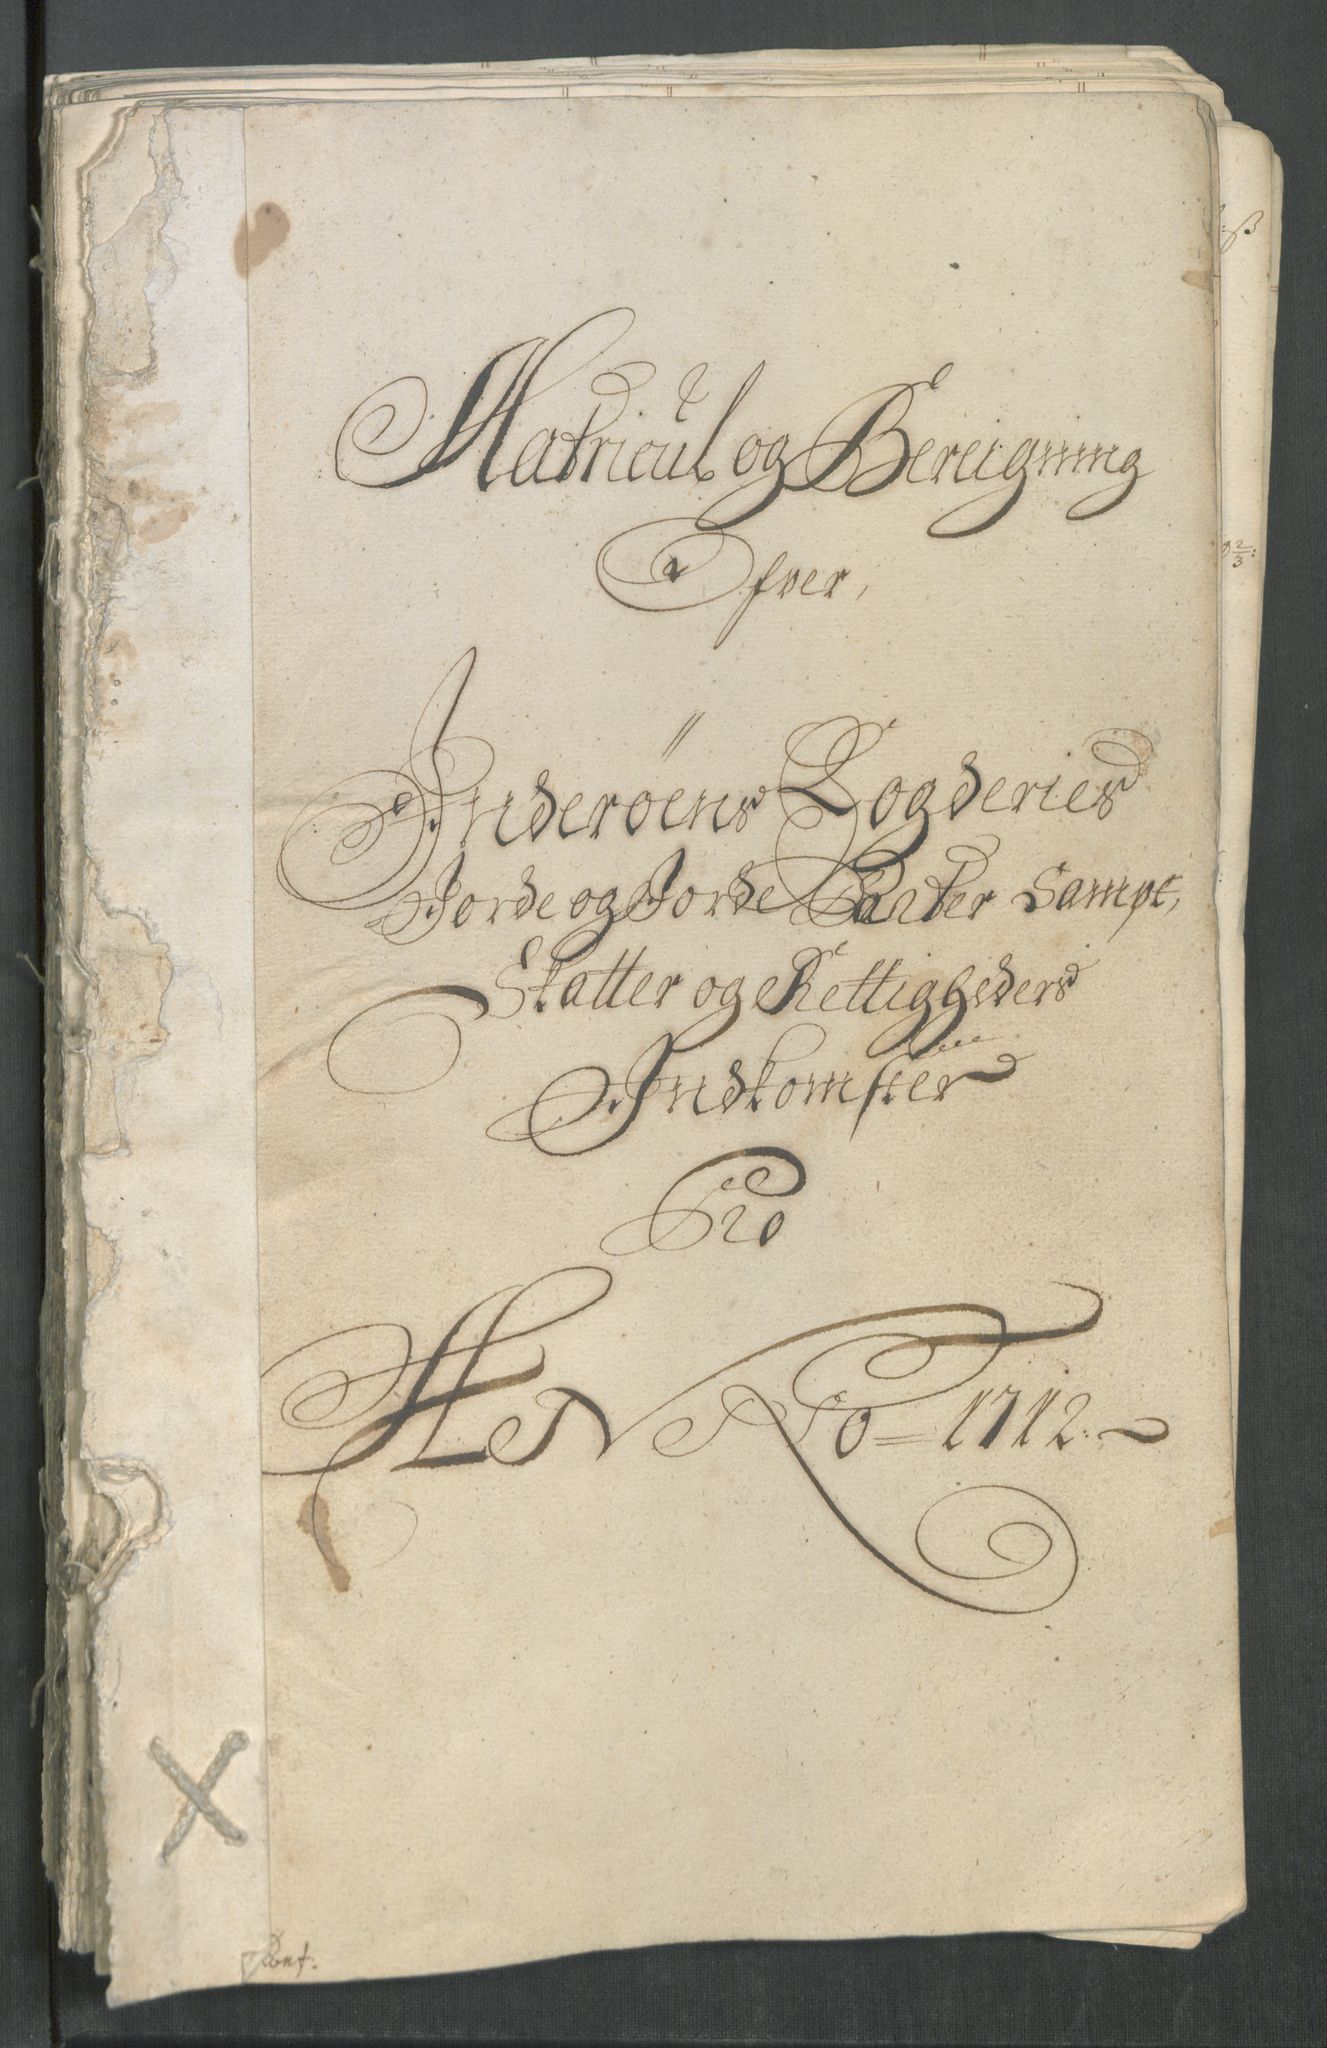 Matricul og Bereigning
Ofver,
Inderøens Fogderies
Jorde og Jorde Parter Sampt,
Skatter og Rettigheders
Indkomster
Pro
ANNO = 1712.